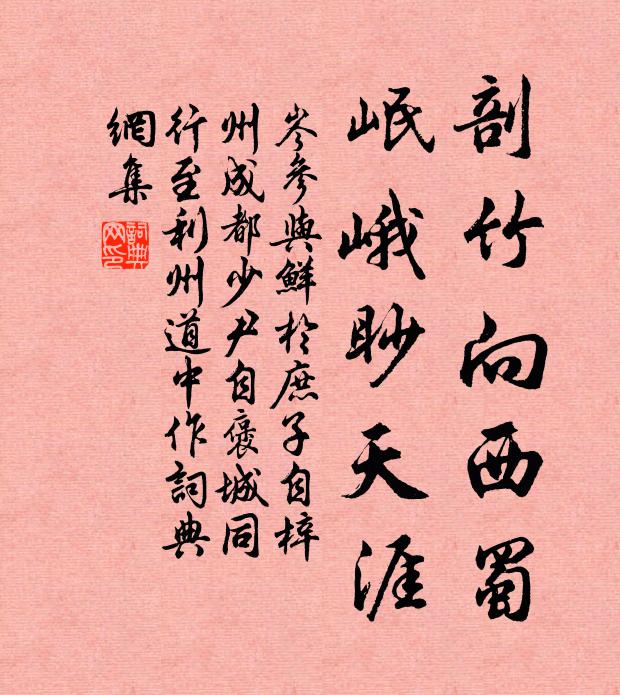 剖竹向西蜀
岷峨眇天涯
岑參與鮮於庶子自梓
州成都少尹自褒城同
行至利州道中作詞典
網集
詞典
网印